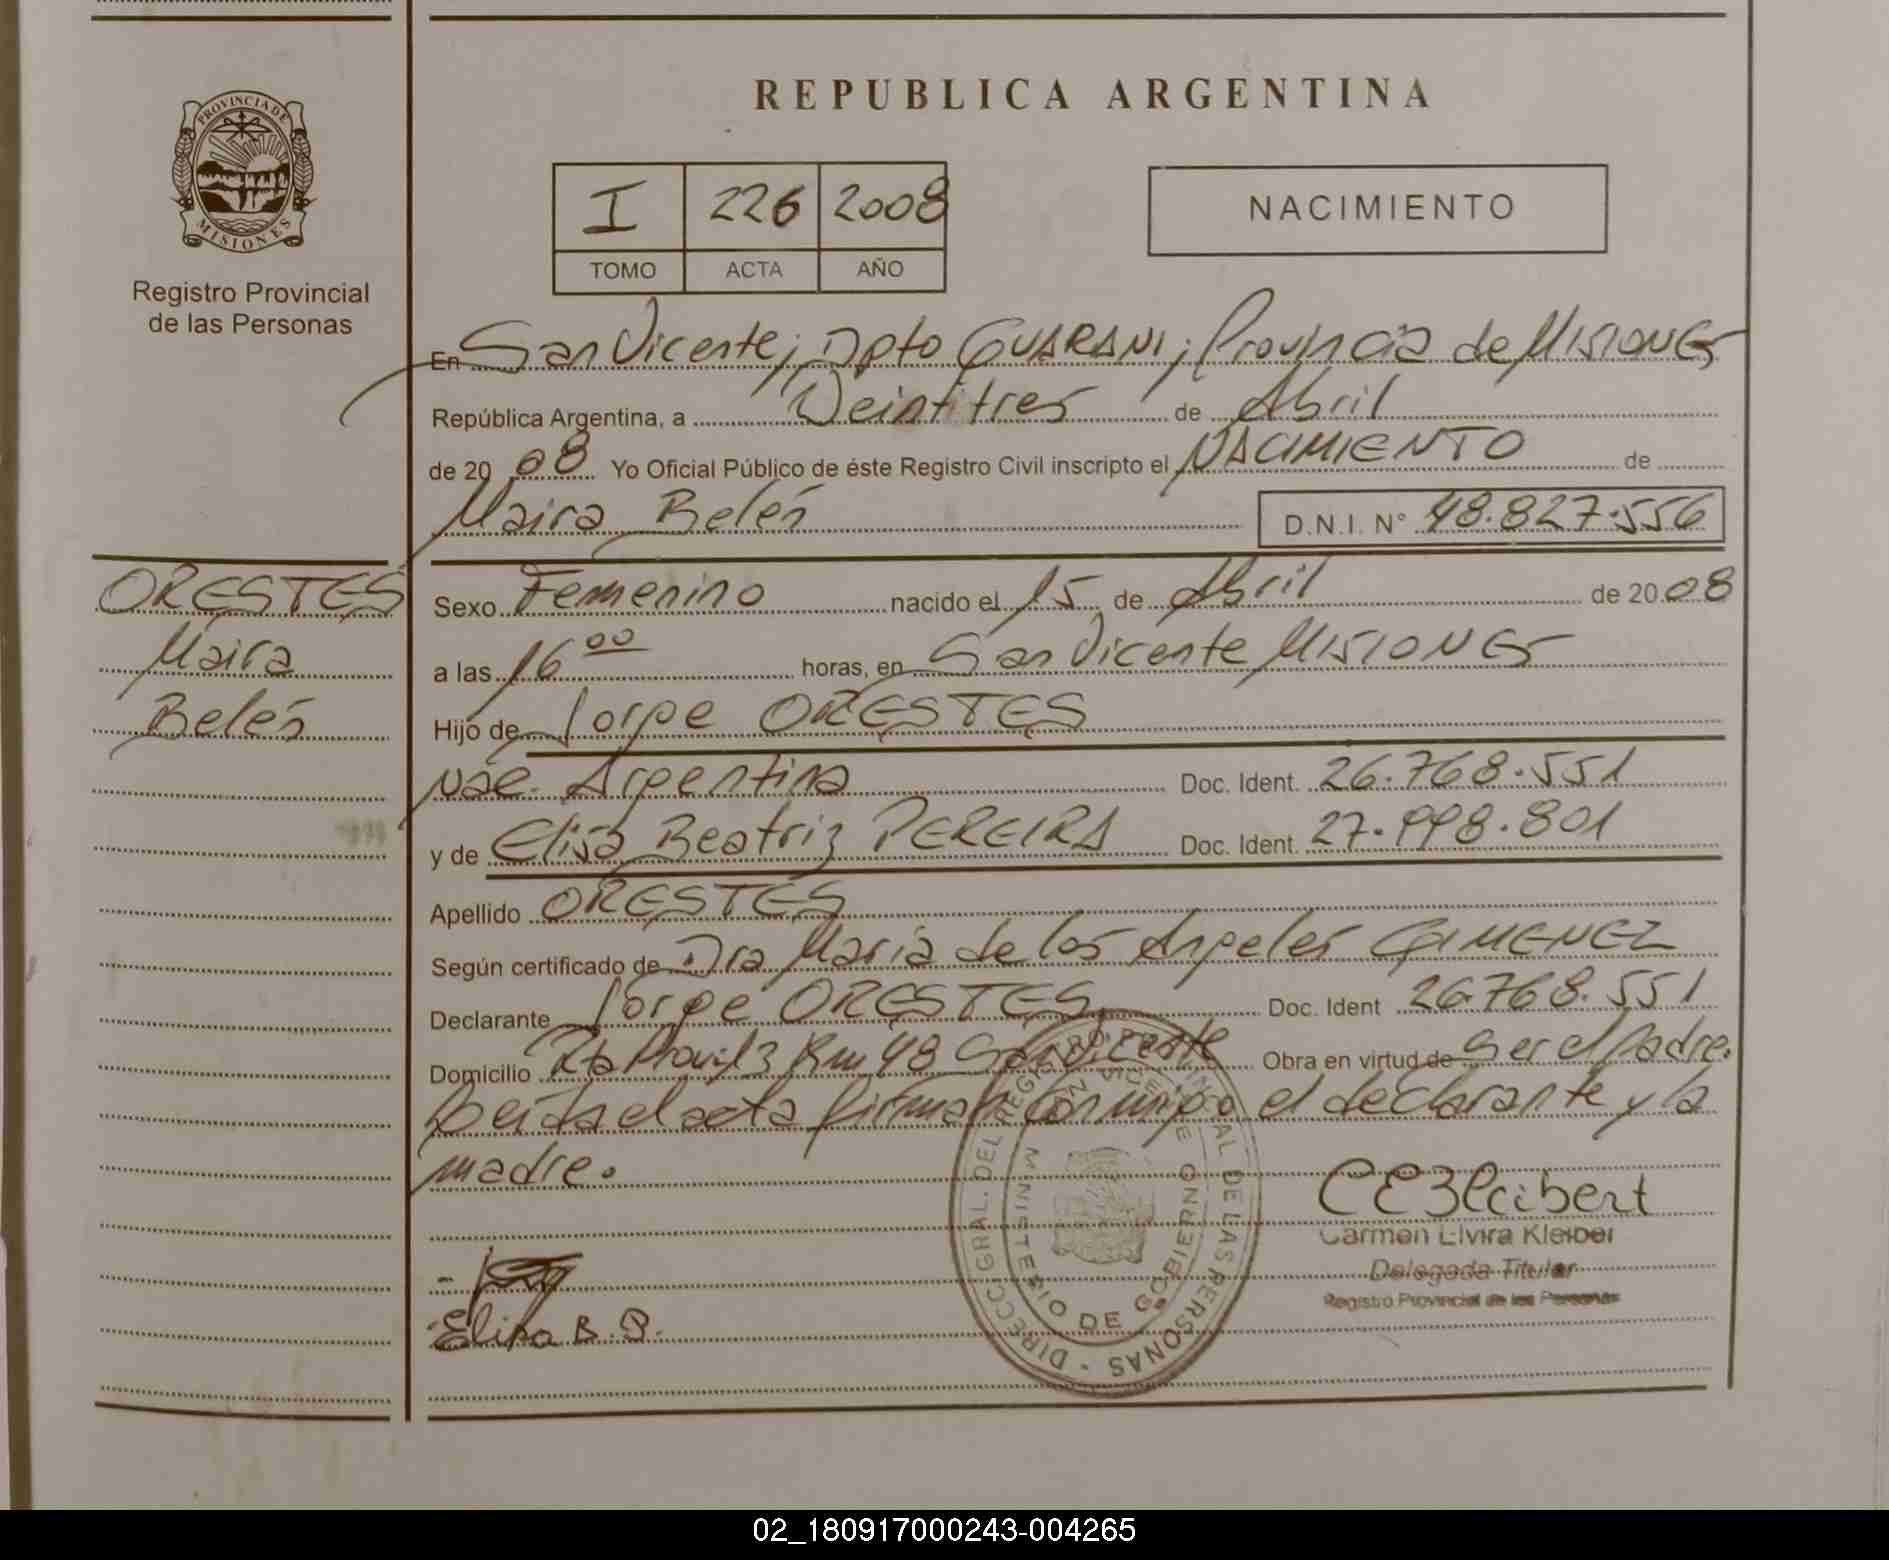 REPUBLICA ARGENTINA
PROVINCIA DE
MISIONES
Registro Provincial
de las Personas
I 226 2008
TOMO ACTA AÑO
NACIMIENTO
En San Vicente, Dpto GUARANI, Provincia de MISIONES
República Argentina, a Veintitres de Abril
de 2008 Yo Oficial Público de éste Registro Civil inscripto el NACIMIENTO de
Maira Belén D.N.I. N° 48.827.556
ORESTES
Maira
Belén
Sexo Femenino nacido el 15 de Abril de 2008
a las 16 00 horas, en San Vicente MISIONES
Hijo de Jorge ORESTES
Nac. Argentina Doc. Ident. 26.768.551
y de Elisa Beatriz PEREIRA Doc. Ident. 27.998.801
Apellido ORESTES
Según certificado de Dra María de los Angeles GIMENEZ
Declarante Jorge ORESTES Doc. Ident 26.768.551
Domicilio Rta Prov. 13 Km 48 San Vicente Obra en virtud de ser el padre.
Leída el acta firman conmigo el declarante y la
madre.
DIRECC. GRAL. DEL REGISTRO PROVINCIAL DE LAS PERSONAS
SAN VICENTE
MINISTERIO DE GOBIERNO
Carmen Elvira Kleiber
Delegada Titular
Registro Provincial de las Personas
Elisa B. P.
02_180917000243-004265